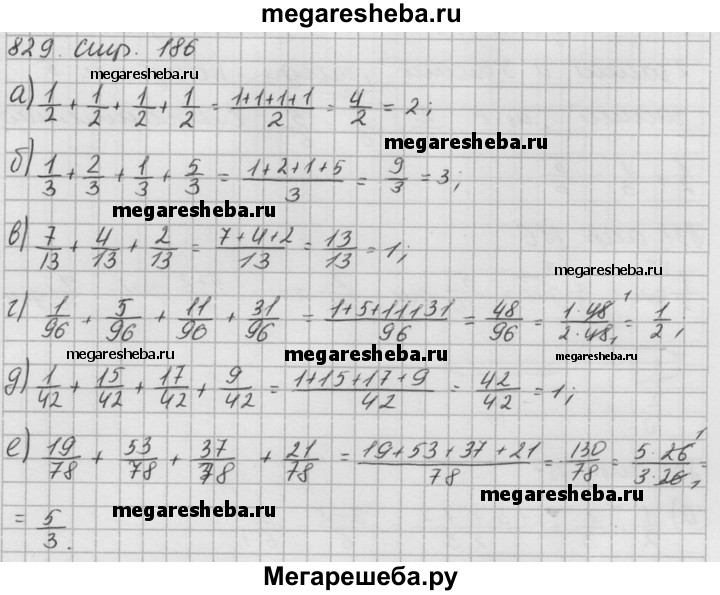 megaresheba.ru
829. стр. 186
megaresheba.ru
а) 1/2 + 1/2 + 1/2 + 1/2 = (1+1+1+1)/2 = 4/2 = 2;
megaresheba.ru
б) 1/3 + 2/3 + 1/3 + 5/3 = (1+2+1+5)/3 = 9/3 = 3;
megaresheba.ru
в) 7/13 + 4/13 + 2/13 = (7+4+2)/13 = 13/13 = 1;
megaresheba.ru
г) 1/96 + 5/96 + 11/90 + 31/96 = (1+5+11+31)/96 = 48/96 = (1·48 1)/(2·48 1) = 1/2;
megaresheba.ru megaresheba.ru megaresheba.ru
д) 1/42 + 15/42 + 17/42 + 9/42 = (1+15+17+9)/42 = 42/42 = 1;
е) 19/78 + 53/78 + 37/78 + 21/78 = (19+53+37+21)/78 = 130/78 = (5·26 1)/(3·26 1) =
megaresheba.ru
megaresheba.ru
= 5/3.
Мегарешеба.ру